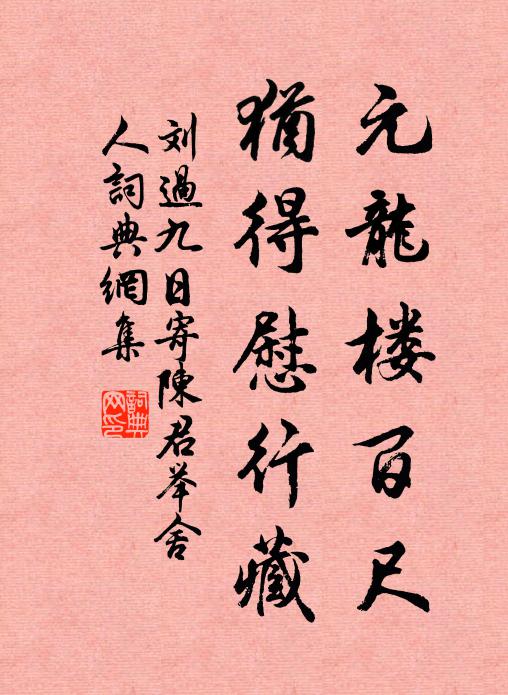 元龍楼百尺
猶得慰行藏
刘過九日寄陳君举舍
人詞典網集
詞典
网印